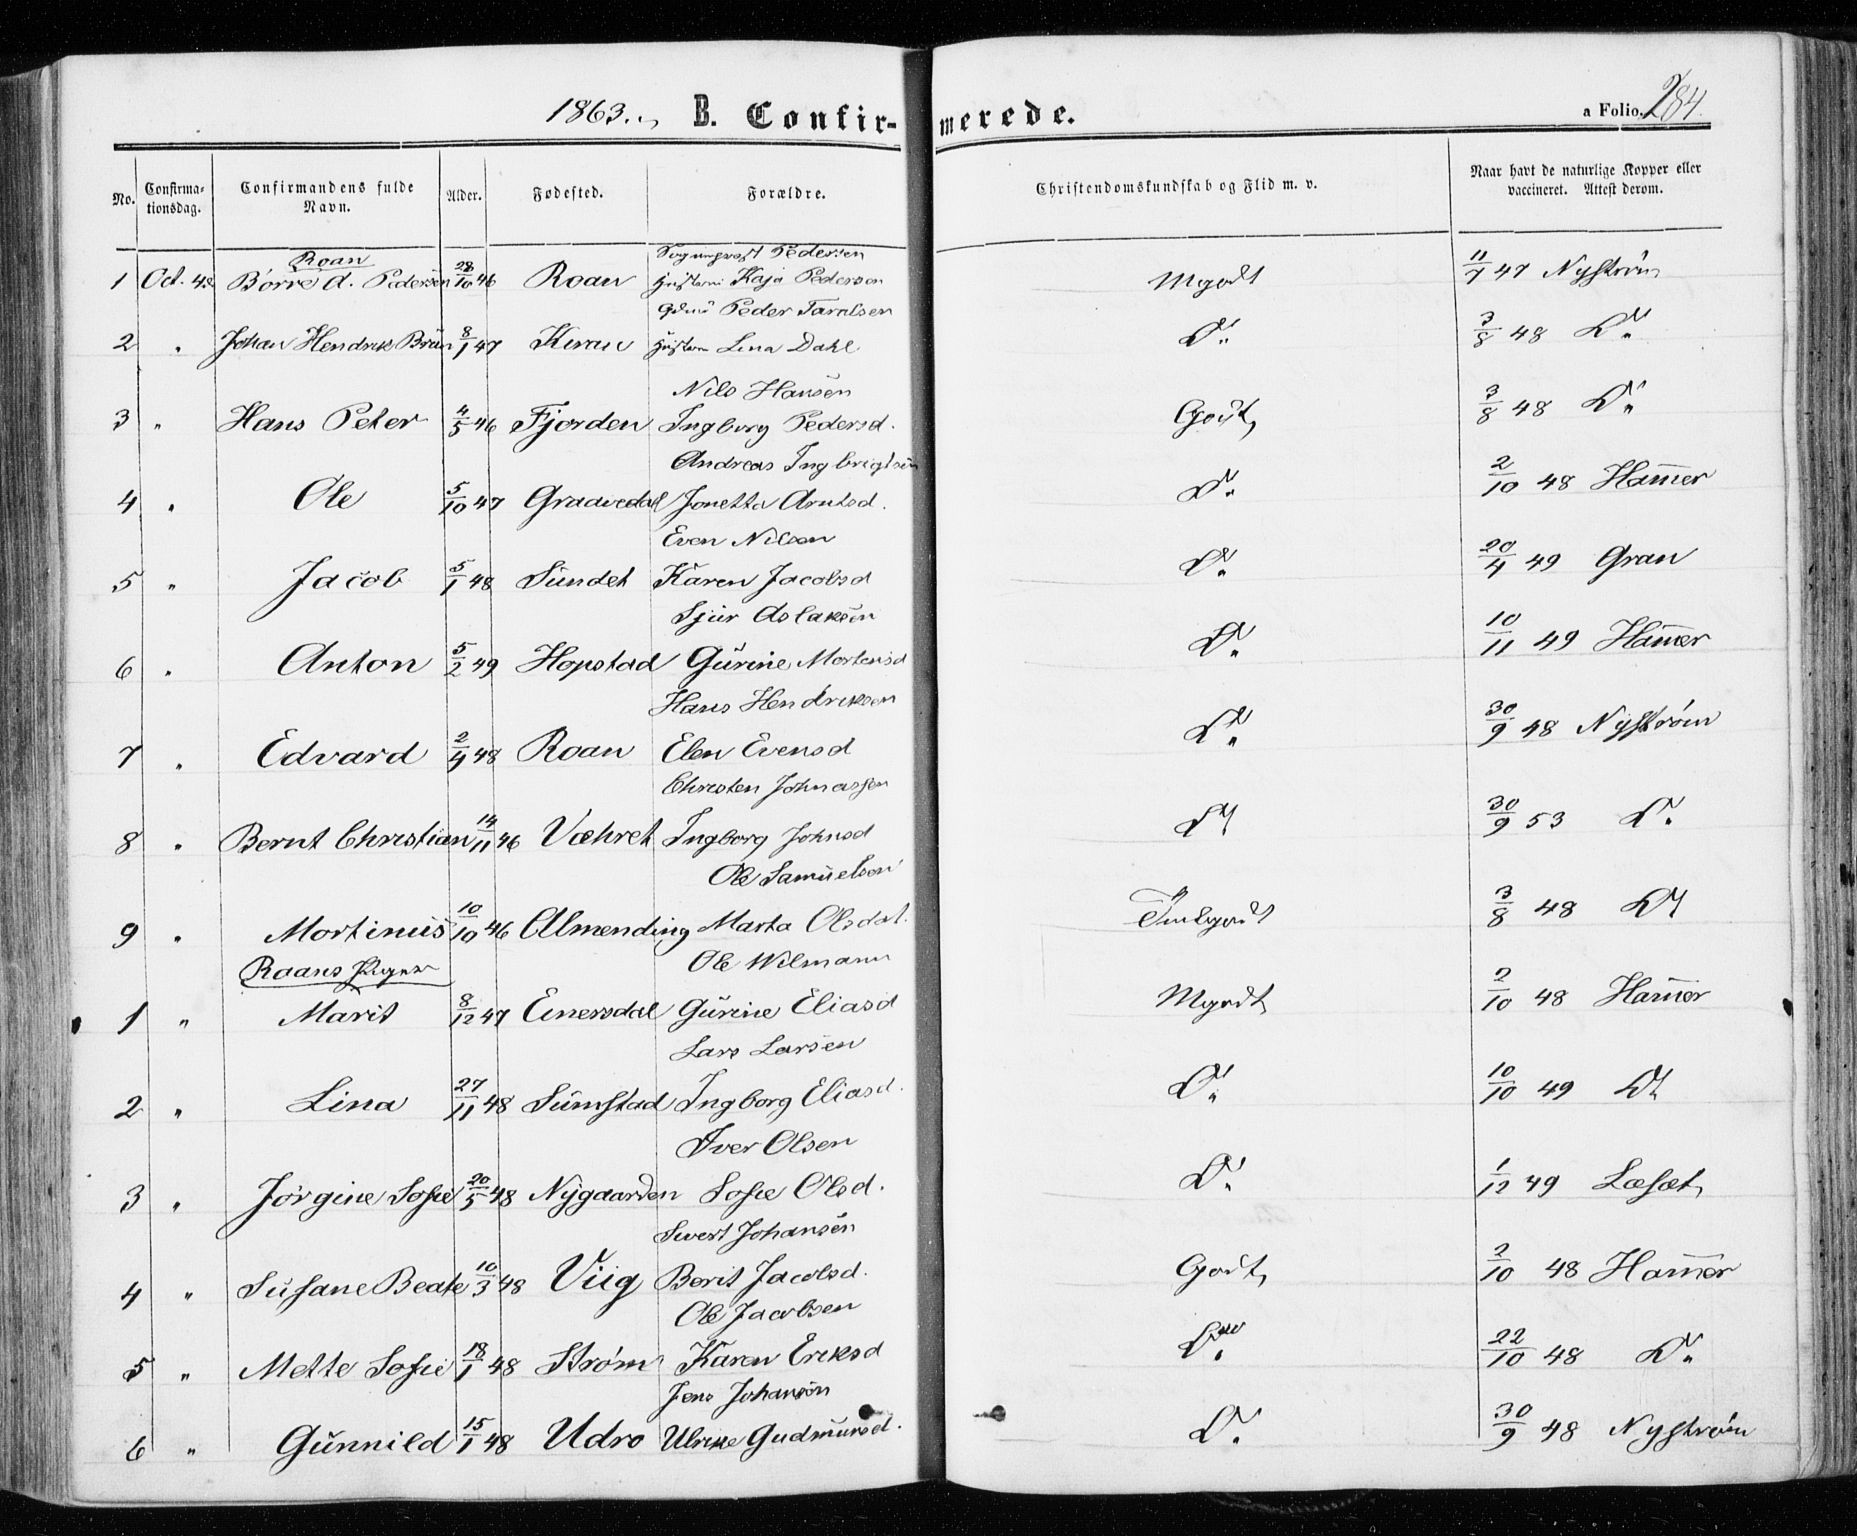 1863. B. Confirmerede. a Folio. 284.
No. Confirmationsdag. Confirmandens fulde Navn. Alder. Fødested. Forældre. Christendomskundskab og Flid m. v. Naar havt de naturlige Kopper eller vaccineret. Attest derom.
Roan
Pedersen
1 Oct. 4de Børre d. Pedersen 28/10 46 Roan Kaja Pedersen Mgodt 11/7 47 Nystrøm
Peder
2 " Johan Hendrik 8/1 47 Kiran Lina Dahl Do 3/8 48 Do
Nils Hansen
3 " Hans Peter 4/5 46 Fjorden Ingborg Pedersd. Godt 3/8 48 Do
Andreas Ingbrigtsen
4 " Ole 5/10 47 Graavedal Jonetta Arntsd. Do 2/10 48 Hammer
Even Nilsen
5 " Jacob 5/1 48 Sundet Karen Jacobsd Do 20/4 49 Gran
Sjur Aslaksen
6 " Anton 5/2 49 Hopstad Gurine Mortensd Do 10/11 49 Hammer
Hans Hendriksen
7 " Edvard 2/4 48 Roan Elen Evensd Do 30/9 48 Nystrøm
Christen Johnassen
8 " Bernt Christian 14/11 46 Væhret Ingborg Johnsd Do 30/9 53 Do
Ole Samuelsen
9 " Mortinus 10/10 46 Almending Marta Olsdat. 3/8 48 Do
Roans Piger
Ole Wilmann
1 " Marit 8/12 47 Einersdal Gurine Eliasd Mgodt 2/10 48 Hammer
Lars Larsen
2 " Lina 27/11 48 Sumstad Ingborg Eliasd. Do 10/10 49 Do
Iver Olsen
3 " Jørgine Sofie 20/5 48 Nygaarden Sofie Olsd. Do 1/12 49
Sivert Johansen
4 " Susane Beate 10/3 48 Viig Berit Jacobsd. Godt 2/10 48 Hammer
Ole Jacobsen
5 " Mette Sofie 18/1 48 Strøm Karen Eriksd Do 22/10 48 Do
Jens Johansen
6 " Gunnild 15/1 48 Udro Ulrike Gudmunsd. Do 30/9 48 Nystrøm